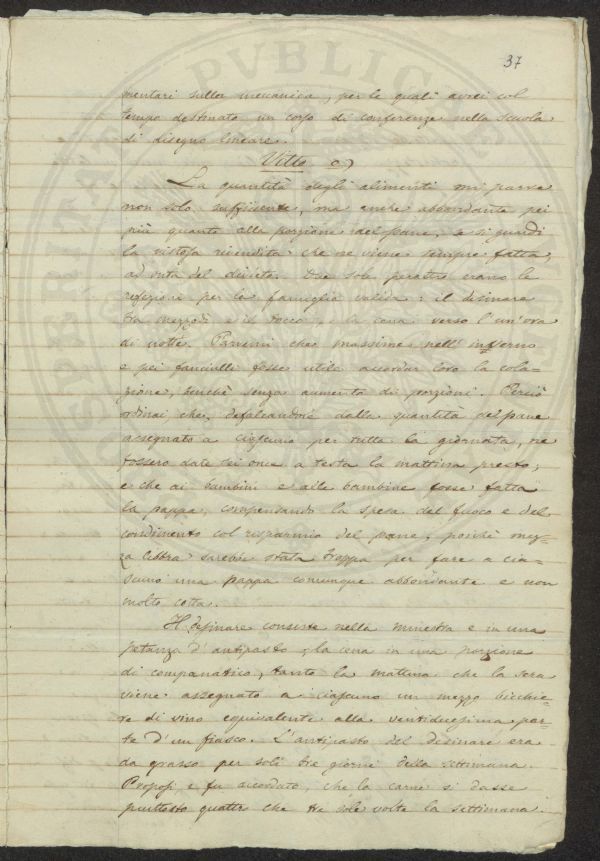 37
mentari sulla meccanica, per le quali avrei col
tempo destinato un corso di conferenze nella scuola
di disegno lineare.
Vitto
La quantità degli alimenti mi parve
non solo sufficiente, ma anche abbondante pei
più quanto alla porzione del pane, se si guardi
la vistosa rivendita che ne viene sempre fatta,
ad onta del divieto. Due sole peraltro erano le
refezioni per la famiglia valida: il desinare
tra mezzodì e il tocco, e la cena verso l'un'ora
di notte. Parvemi che massime nell'inverno
e pei fanciulli fosse utile accordar loro la cola-
zione, benchè senza aumento di porzioni. Perciò
ordinai che, defalcandole dalla quantità del pane
assegnato a ciascuno per tutta la giornata, ne
fossero date sei once a testa la mattina presto,
e che ai bambini e alle bambine fosse fatta
la pappa, compensando la spesa del fuoco e del
condimento col risparmio del pane, poichè mez-
za libbra sarebbe stata troppa per fare a cia-
scuno una pappa comunque abbondante e non
molto cotta.
Il desinare consiste nella minestra e in una
pietanza d'antipasto, la cena in una porzione
di companatico, tanto la mattina che la sera
viene assegnato a ciascuno un mezzo bicchie-
re di vino equivalente alla ventiduesima par-
te d'un fiasco. L'antipasto del desinare era
da grasso per soli tre giorni della settimana.
Proposi, e fu accordato, che la carne si dasse
piuttosto quattro che tre sole volte la settimana.